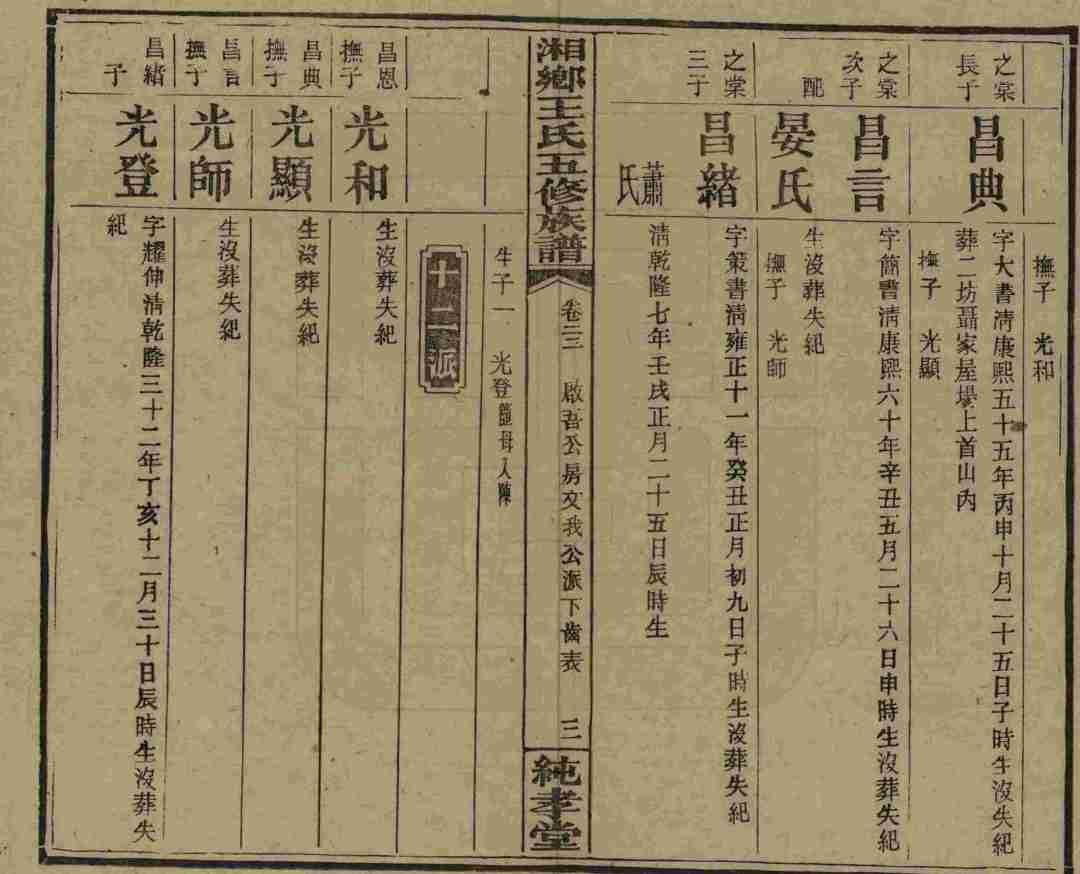 撫子 光和
之棠長子
昌典
字大書淸康熙五十五年丙申十月二十五日子時生沒失紀
葬二坊聶家屋場上首山內
撫子 光顯
之棠次子
昌言
字簡書淸康熙六十年辛丑五月二十六日申時生沒葬失紀
配
晏氏
生沒葬失紀
撫子 光師
之棠三子
昌緒
字策書淸雍正十一年癸丑正月初九日子時生沒葬失紀
蕭氏
淸乾隆七年壬戌正月二十五日辰時生
湘鄉王氏五修族譜
卷二三 啟吾公房文我公派下齒表 三
純孝堂
生子一 光登隨母入陳
十二派
昌恩撫子
光和
生沒葬失紀
昌典撫子
光顯
生沒葬失紀
昌言撫子
光師
生沒葬失紀
昌緒子
光登
字耀伸淸乾隆三十二年丁亥十二月三十日辰時生沒葬失
紀